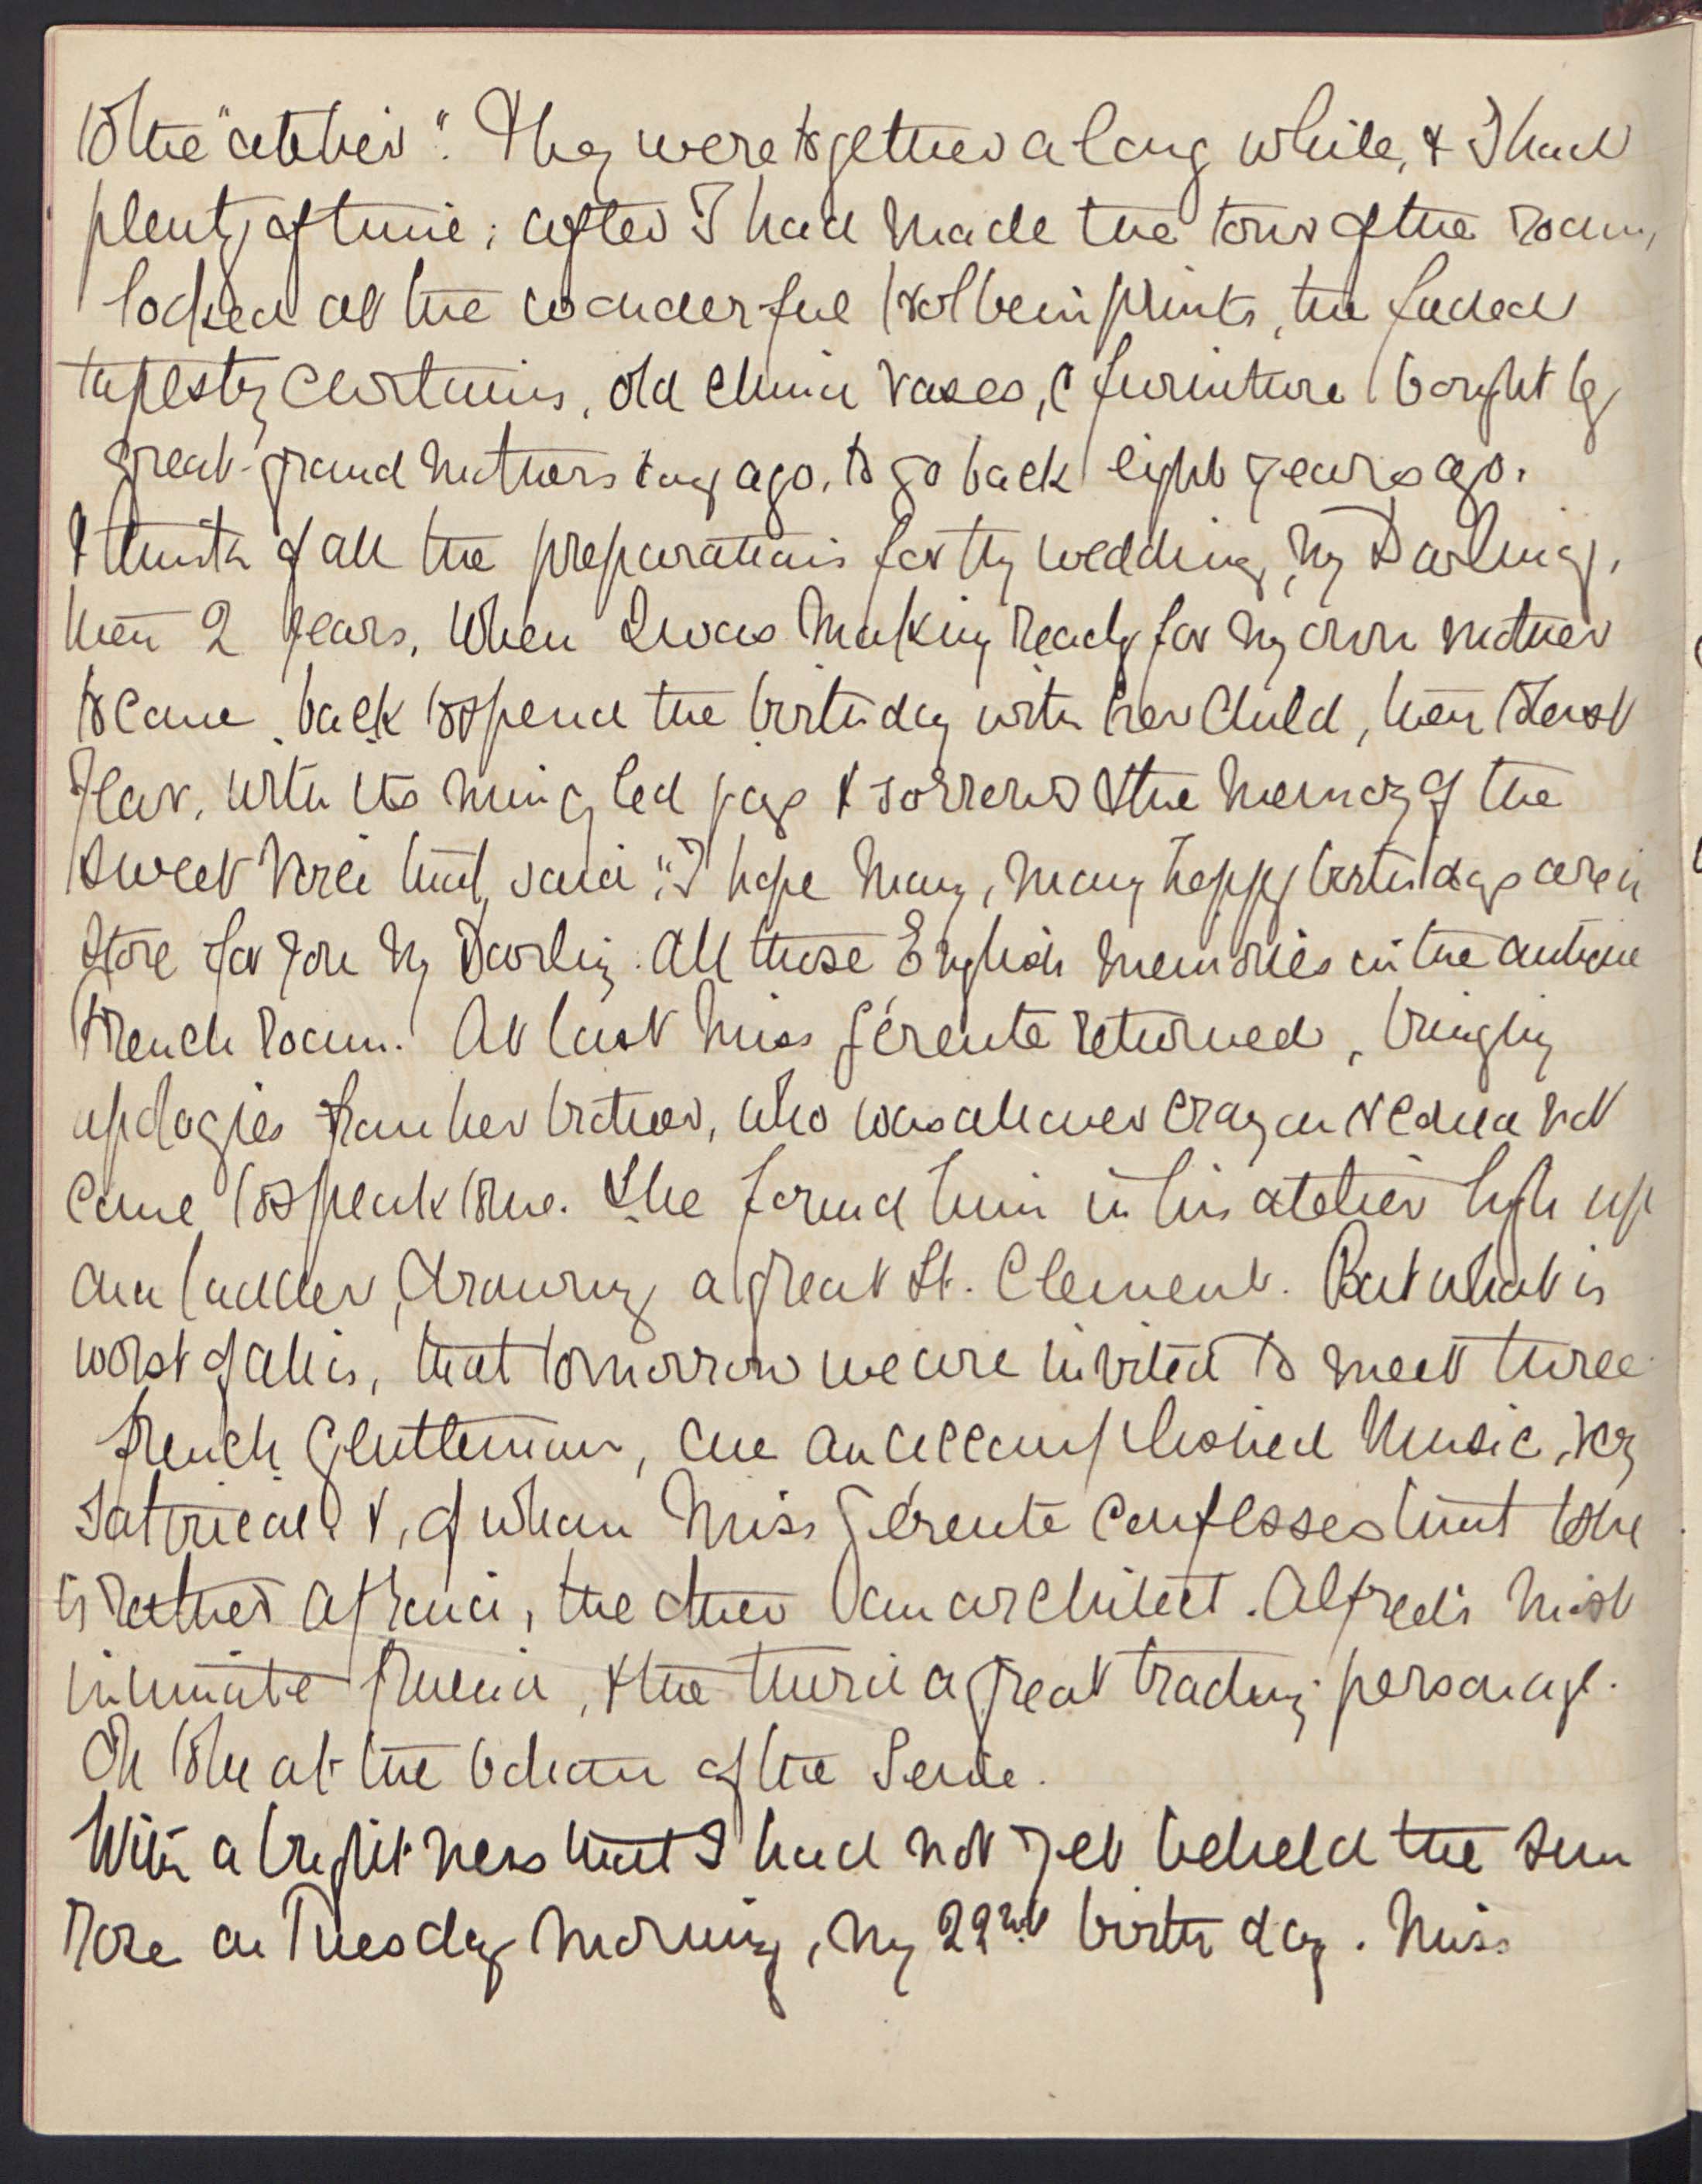 to the "atelier". They were together a long while, & I had
plenty of time, after I had made the tour of the room,
looked at the wonderful Holbein prints, the faded
tapestry curtains, old china vases, & furniture bought by
great-grand mothers long ago, to go back eight years ago.
I think of all the preparations for thy wedding, my Darling,
then 2 years, when I was making ready for my own mother
to come back to spend the birthday with her child, then to last
year, with its mingled joys & sorrows & the memory of the
sweet voice that said "I hope many, many happy birthdays are in
store for you my Darling. All these English memories in the antique
French room! At last Miss Gérente returned, bringing
apologies from her brother, who was all over crayon & could not
come to speak to me. She found him in his atelier high up
on a ladder, drawing a great St. Clement. But what is
worst of all is, that tomorrow we are invited to meet three
french gentleman, one an accomplished music, very
satirical &, of whom Miss Gérente confesses that she
is rather afraid, the other an architect. Alfred's most
intimate friend, & the third a great trading personage.
Oh to be at the bottom of the Seine.
With a brightness that I had not yet beheld the sun
rose on Tuesday morning, my 22nd birthday. Miss